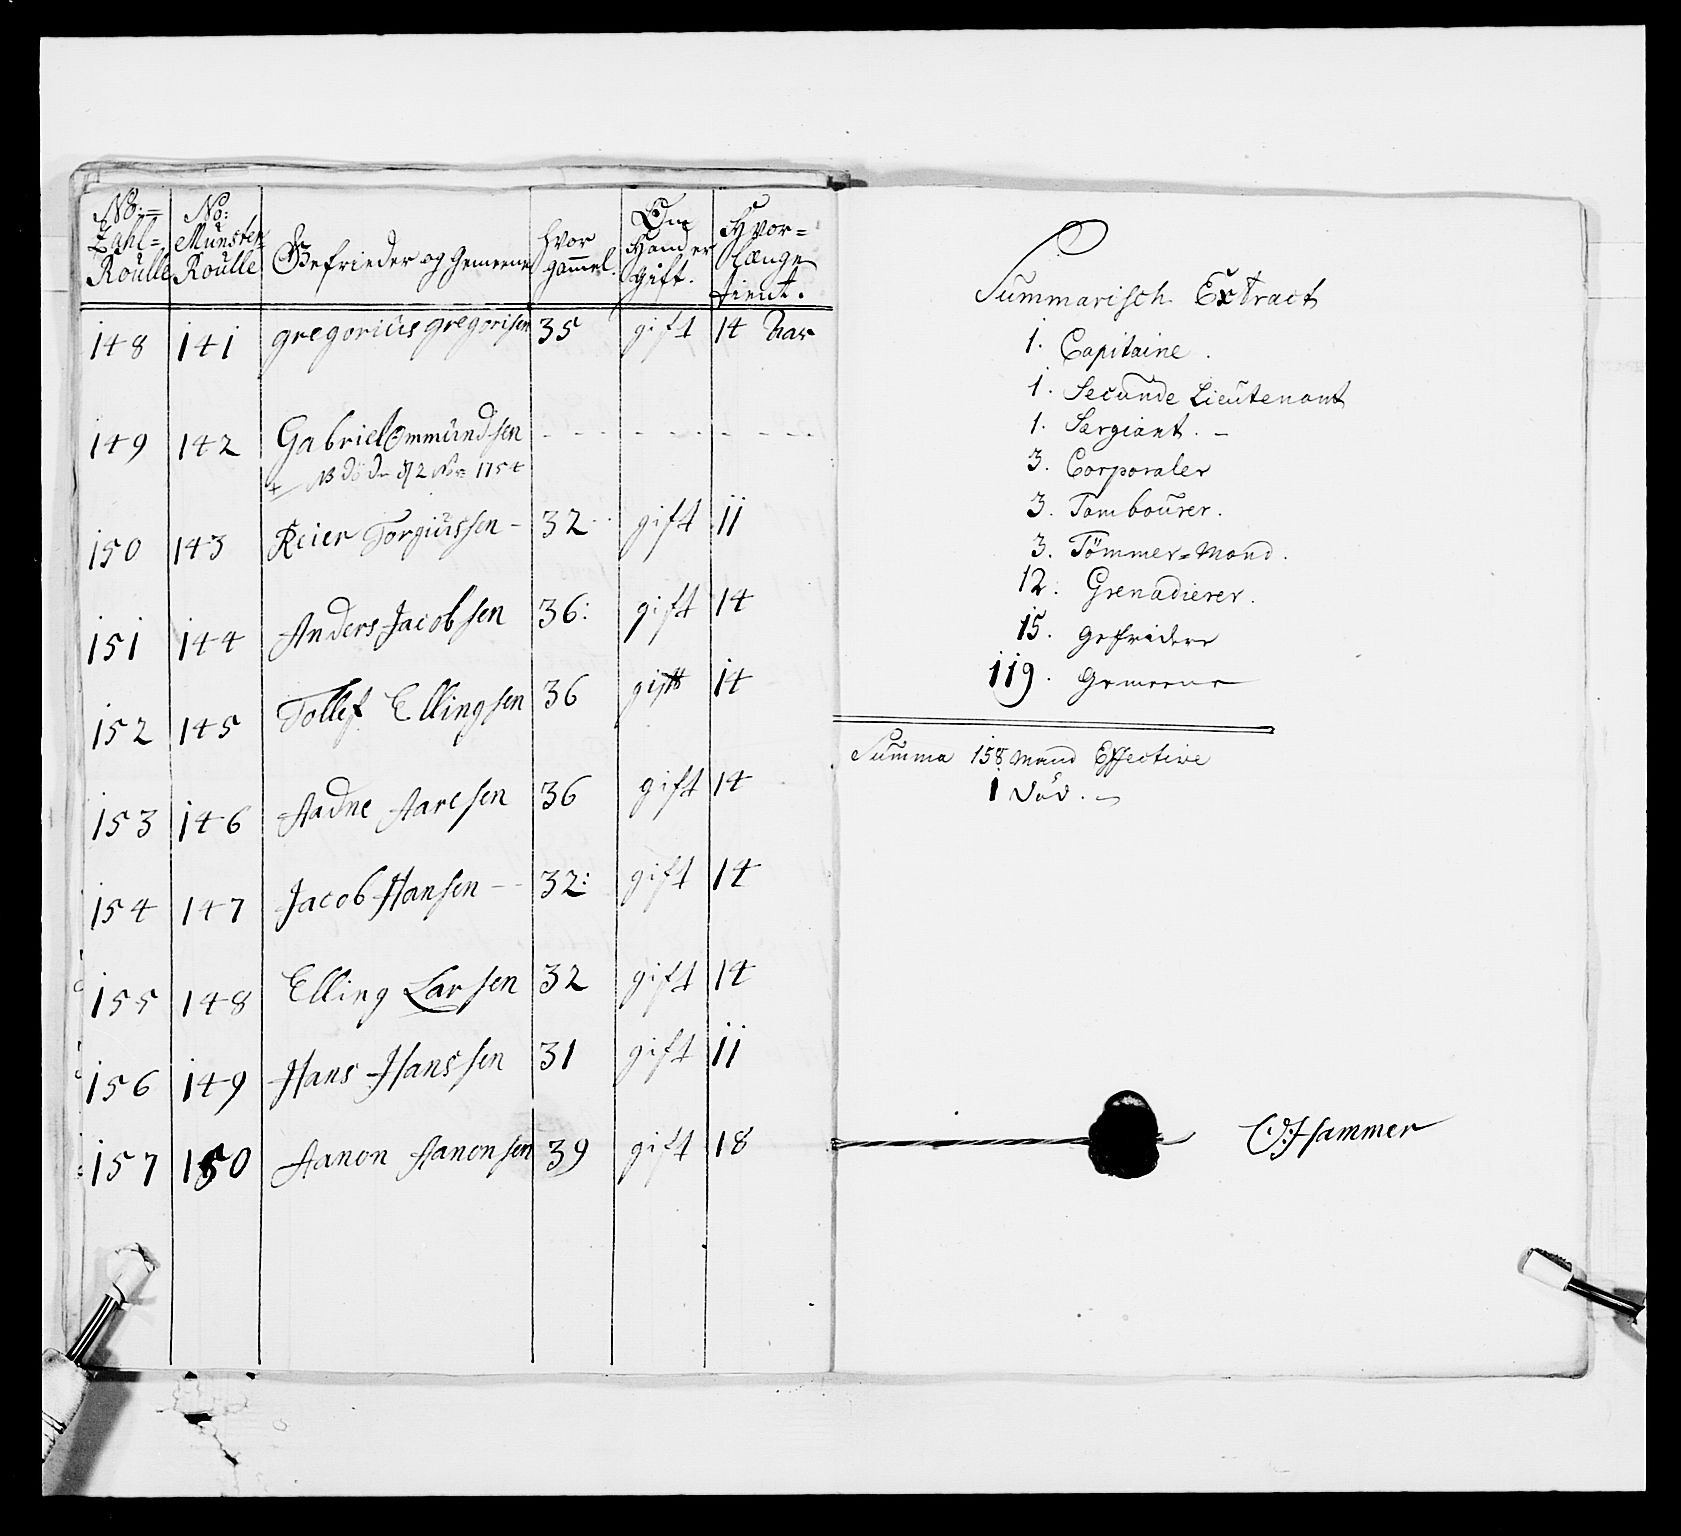 No:= Zahl= Roulle | No: Münster= Roulle | Gefrieder og Gemeene | hvor gammel. | Om Hand er gift. | Hvor= længe tient.
148 141 gregorius gregorisen 35 gift 14 Aar
149 142 Gabriel Ommundsen - - - - - - - -
+ NB död 1754
150 143 Reier Torgiussen - 32 gift 11
151 144 Anders Jacobsen 36: gift 14
152 145 Tollef Ellingsen 36 gift 14
153 146 Aadne Aaresen 36 gift 14
154 147 Jacob Hansen -- 32: gift 14
155 148 Elling Larsen 32 gift 14
156 149 Hans Hanssen 31 gift 11
157 150 Aanon Aanonsen 39 gift 18
Summarisch Extract
1. Capitaine.
1. Secunde Lieutenant
1. Sergiant. -
3. Corporaler
3. Tambourer.
3. Tömmer=Mand.
12. Grenadierer.
15. gefridere
119. Gemeene
Summa 158 Mand Effective
1 död.
Hammer